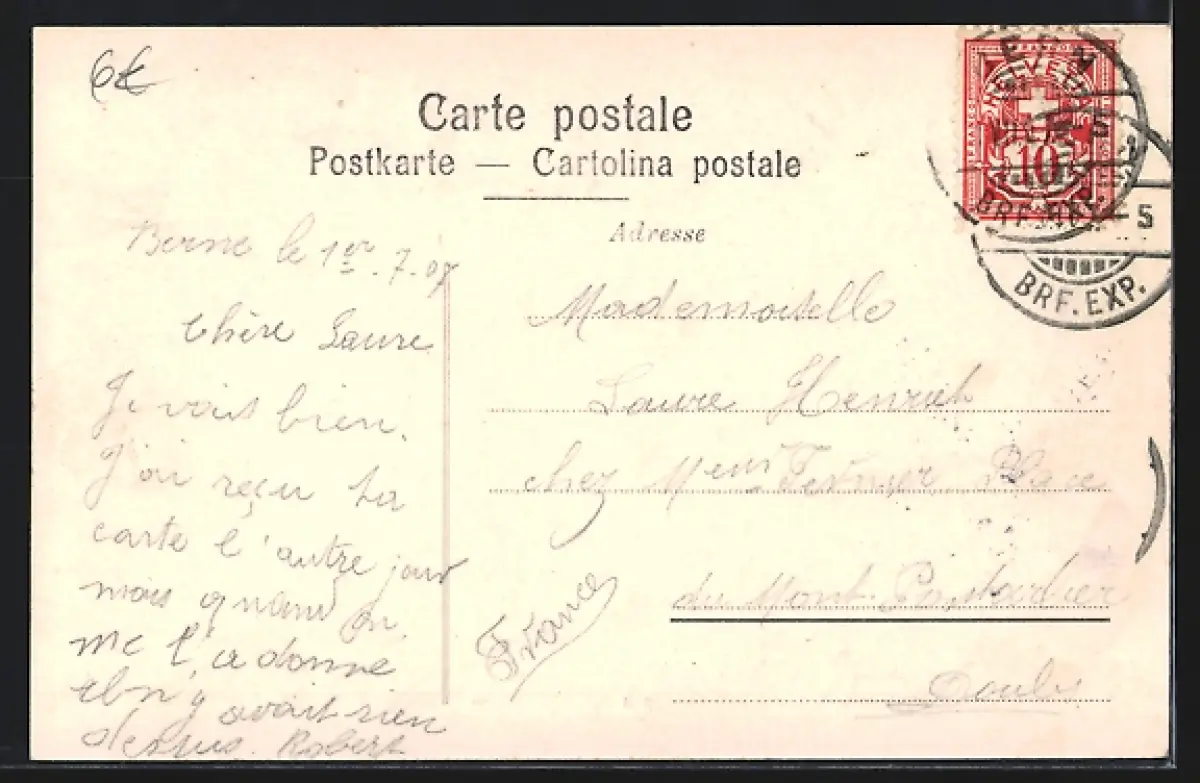 6€
Carte postale
Postkarte — Cartolina postale
Adresse
Berne le 1er. 7. 07
Chère Laure
Je vais bien.
J'ai reçu ta
carte l'autre jour
mais quand on
me l'a donné
il n'y avait rien
dessus. Robert
Mademoiselle
Laure
chez Place
du Mont. Pontarlier
Doubs
France
FRANCO
HELVETIA
10
5
BRF. EXP.
5
BRF. EXP.